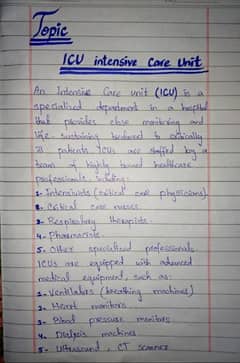 Topic
ICU intensive Care Unit
An Intensive Care unit (ICU) is a
specialized department in a hospital
that provides close monitoring and
life-sustaining to critically
ill patients ICUs are staffed by a
team of highly trained healthcare
professionals, including:
1- Intensivists (critical care physicians)
2- Critical care nurses.
3- Respiratory therapists.
4- Pharmacists.
5- Other specialized professionals.
ICUs are equipped with advanced
medical equipment, such as:
1- Ventilators (breathing machines)
2- Heart monitors
3- Blood pressure monitors
4- Dialysis machines
5- Ultrasound, CT scanner